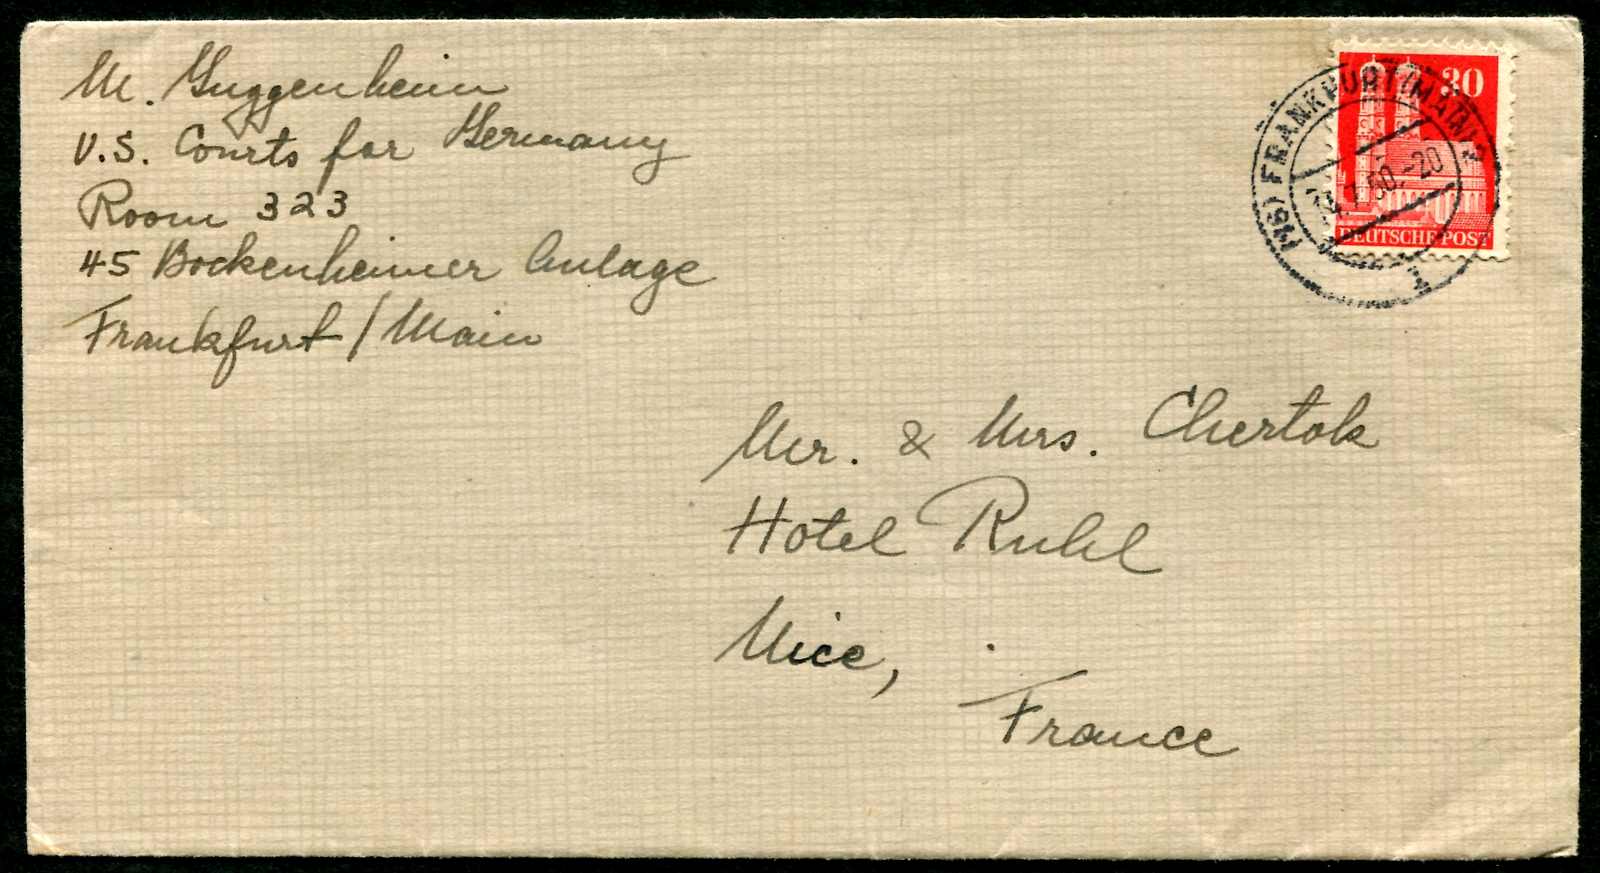 M. Guggenheim
U.S. Courts for Germany
Room 323
45 Bockenheimer Anlage
Frankfurt / Main
30
DEUTSCHE POST
(16) FRANKFURT (MAIN) 2
.7.50.-20
Mr. & Mrs. Chertok
Hotel Ruhl
Nice,
France